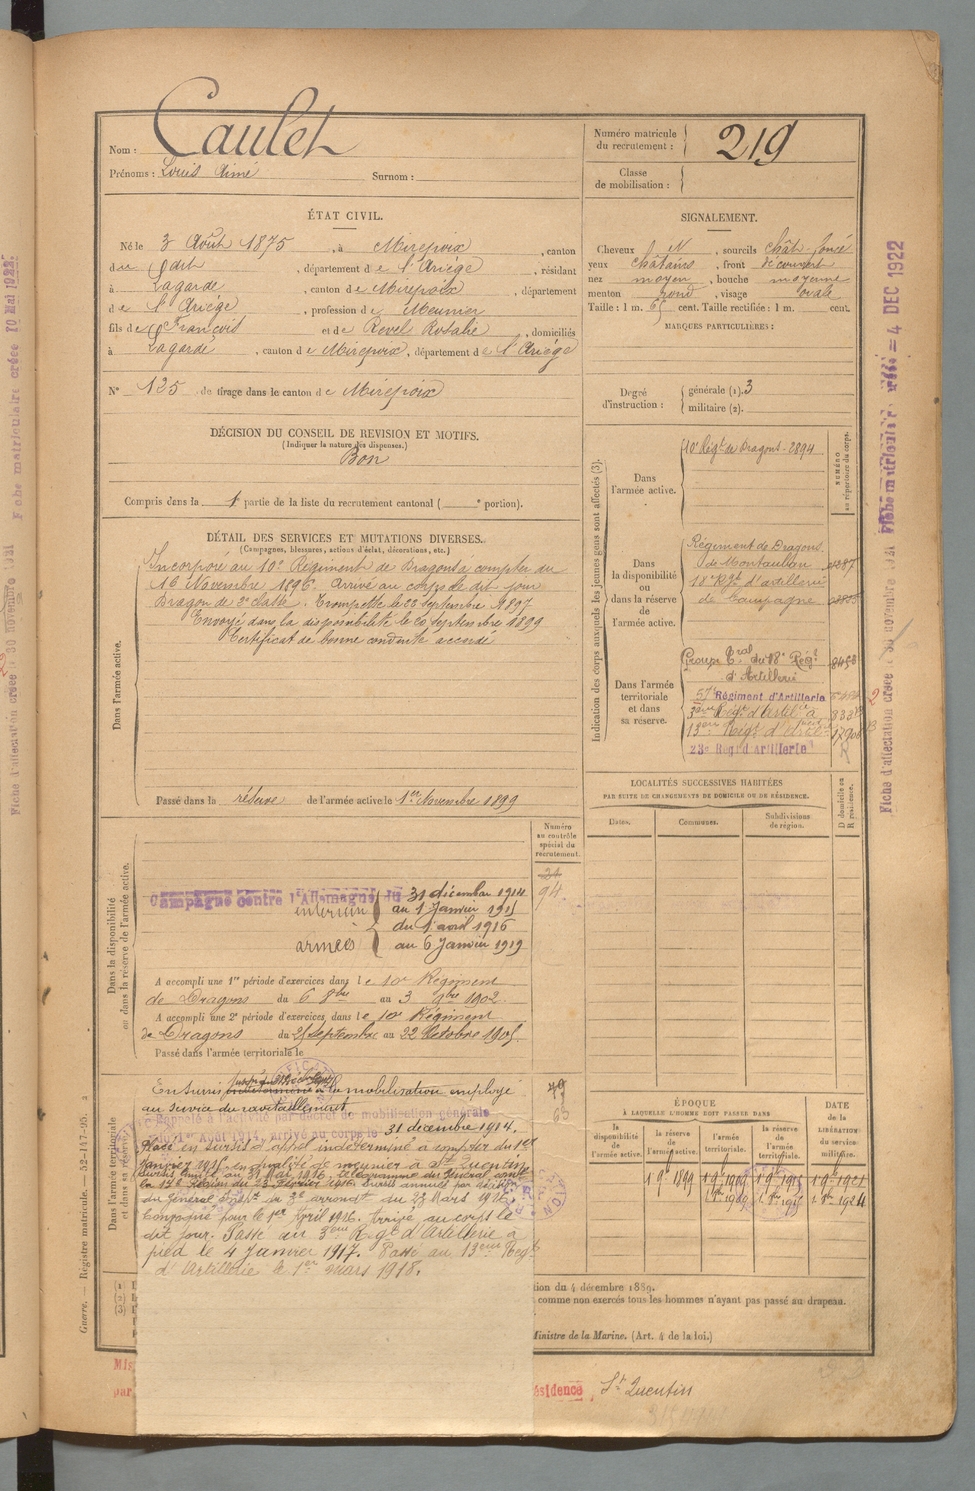 Nom : Caulet
Prénoms : Louis Aimé Surnom :
Numéro matricule du recrutement : 219
Classe de mobilisation :
ÉTAT CIVIL.
Né le 3 Août 1875, à Mirepoix, canton
du dit, département de l'Ariège, résidant
à Lagarde, canton de Mirepoix, département
de l'Ariège, profession de Meunier
fils de François et de Revel Rosalie, domiciliés
à Lagarde, canton de Mirepoix, département de l'Ariège
N° 125 de tirage dans le canton de Mirepoix
DÉCISION DU CONSEIL DE REVISION ET MOTIFS.
(Indiquer la nature des dispenses.)
Bon
Compris dans la 1 partie de la liste du recrutement cantonal ( e portion).
SIGNALEMENT.
Cheveux et N, sourcils chât. foncé
yeux châtains, front découvert
nez moyen, bouche moyenne
menton rond, visage ovale
Taille : 1 m. 65 cent. Taille rectifiée : 1 m. cent.
MARQUES PARTICULIÈRES :
Degré d'instruction : générale (1). 3
militaire (2).
DÉTAIL DES SERVICES ET MUTATIONS DIVERSES.
(Campagnes, blessures, actions d'éclat, décorations, etc.)
Dans l'armée active.
Incorporé au 10e Régiment de Dragons à compter du
16 Novembre 1896. Arrivé au corps le dit jour
Dragon de 2e classe. Trompette le 23 septembre 1897
Envoyé dans la disponibilité le 20 septembre 1899
Certificat de bonne conduite accordé
Passé dans la réserve de l'armée active le 1er Novembre 1899
Indication des corps auxquels les jeunes gens sont affectés (3).
NUMÉRO au répertoire du corps.
Dans l'armée active.
10e Régt de Dragons - 2894
Dans la disponibilité ou dans la réserve de l'armée active.
Régiment de Dragons
de Montauban
18e Rgt d'artillerie
de Campagne
Dans l'armée territoriale et dans sa réserve.
Groupe Tral du 18e Régt 8458
d'Artillerie
57e Régiment d'Artillerie
3ème Régt d'Artie à
13ème Régt d'Artie
23e Régt d'Artillerie
LOCALITÉS SUCCESSIVES HABITÉES
PAR SUITE DE CHANGEMENTS DE DOMICILE OU DE RÉSIDENCE.
Dates. Communes. Subdivisions de région.
D domicile ou R résidence.
Dans la disponibilité ou dans la réserve de l'armée active.
Numéro au contrôle spécial du recrutement.
94
Campagne contre l'Allemagne du 31 décembre 1914
intérieur au 1 Janvier 1915
du 1 avril 1916
armées au 6 Janvier 1919
A accompli une 1re période d'exercices dans le 10e Régiment
de Dragons du 6 8bre au 3 9bre 1902.
A accompli une 2e période d'exercices dans le 10e Régiment
de Dragons du 25 septembre au 22 Octobre 1905
Passé dans l'armée territoriale le
Dans l'armée territoriale et dans sa réserve.
En sursis la mobilisation employé
au service du ravitaillement
Rappelé à l'activité par décret de mobilisation générale
du 1er Août 1914, arrivé au corps le 31 décembre 1914.
Placé en sursis d'appel indéterminé à compter du 1er
Janvier 1915 en qualité de meunier à St Quentin
la 17e Région du 23 Février 1916. Sursis annulé par décision
du Général Comt du 3e arrondt du 23 Mars 1916
Convoqué pour le 1er Avril 1916. Arrivé au corps le
dit jour. Passé au 3ème Régt d'Artillerie à
pied le 4 Janvier 1917. Passé au 13ème Régt
d'Artillerie le 1er mars 1918.
ÉPOQUE
À LAQUELLE L'HOMME DOIT PASSER DANS
la disponibilité de l'armée active. la réserve de l'armée active. l'armée territoriale. la réserve de l'armée territoriale.
DATE de la LIBÉRATION du service militaire.
1 9e 1899 1 9e 1909 1 9e 1915 1 9e 1921
tion du 4 décembre 1889.
comme non exercés tous les hommes n'ayant pas passé au drapeau.
Ministre de la Marine. (Art. 4 de la loi.)
Mis
par
ésidence St Quentin
Guerre. — Registre matricule. — 52-147-95.
Fiche matriculaire créée 10 Mai 1922
Fiche d'affectation créée le 30 novembre 1921
Fiche matriculaire créée = 4 DEC 1922
Fiche d'affectation créée le 30 novembre 1921